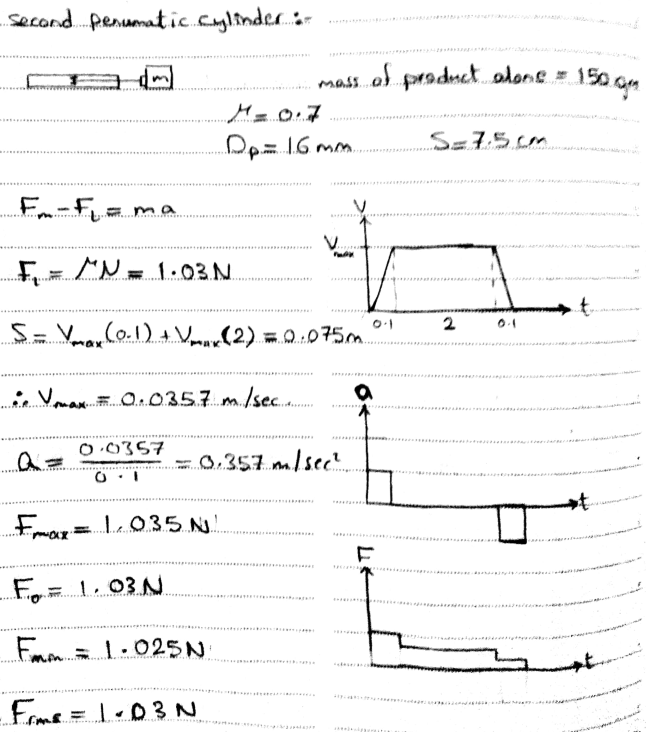 second penumatic cylinder :-
m
mass of product alone = 150 gm
μ = 0.7
Dp = 16 mm S = 7.5 cm
Fm - FL = ma
FL = μN = 1.03 N
S = Vmax(0.1) + Vmax(2) = 0.075m
∴ Vmax = 0.0357 m/sec.
a = 0.0357 / 0.1 = 0.357 m/sec²
Fmax = 1.035 N
Fo = 1.03 N
Fmin = 1.025 N
Frms = 1.03 N
V
Vmax
t
0.1 2 0.1
a
t
F
t